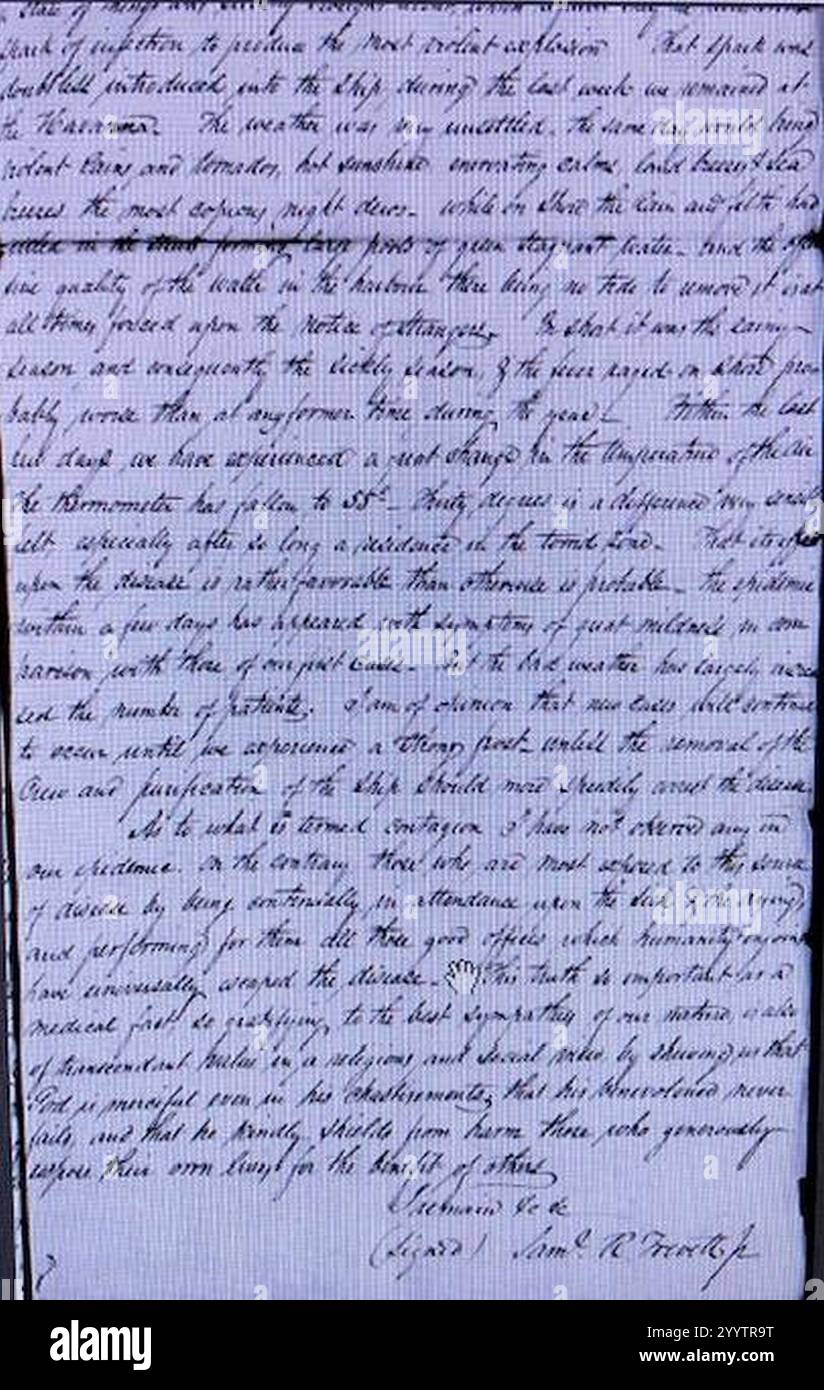 state of things and
spark of infection to produce the most violent explosion That spark was
doubtless introduced into the Ship, during the last week we remained at
the Havanna. The weather was very unsettled. the same day would bring
violent rains and tornados, hot sunshine enervating calms, land breezes & Sea
breezes the most copious night dews. while on Shore the rain and filth had
in the street forming large pools of green stagnant water. And the offen
sive quality of the water in the harbour there being no tide to remove it is at
all times forced upon the notice of strangers. In short it was the rainy
season and consequently the sickly season, & the fever raged on shore pro
bably worse than at any former time during the year. Within the last
few days we have experienced a great change in the temperature of the air
The thermometer has fallen to 55d. thirty degrees is a difference very sensibly
felt especially after so long a residence in the torrid zone. That its effect
upon the disease is rather favorable than otherwise is probable. the epidemic
within a few days has appeared with symptoms of great mildness in com
parison with those of our first cases. But the bad weather has largely increa
sed the number of patients. I am of opinion that new cases will continue
to occur until we experience a strong frost. unless the removal of the
Crew and purification of the Ship should more speedily arrest the disease.
As to what is termed contagion I have not observed any in
our epidemic. on the contrary those who are most exposed to this source
of disease by being continually in attendance upon the sick & the dying,
and performing for them all those good offices which humanity enjoins
have universally escaped the disease. This truth so important as a
medical fact, so gratifying to the best sympathies of our nature, is also
of transcendant value in a religious and social view by shewing us that
God is merciful even in his chastisements, that his benevolence never
fails, and that he kindly shields from harm those who generously
expose their own lives for the benefit of others
I remain &c &c
(Signed) Saml. R Trevett Jr
alamy
Image ID: 2YYTR9T
www.alamy.com